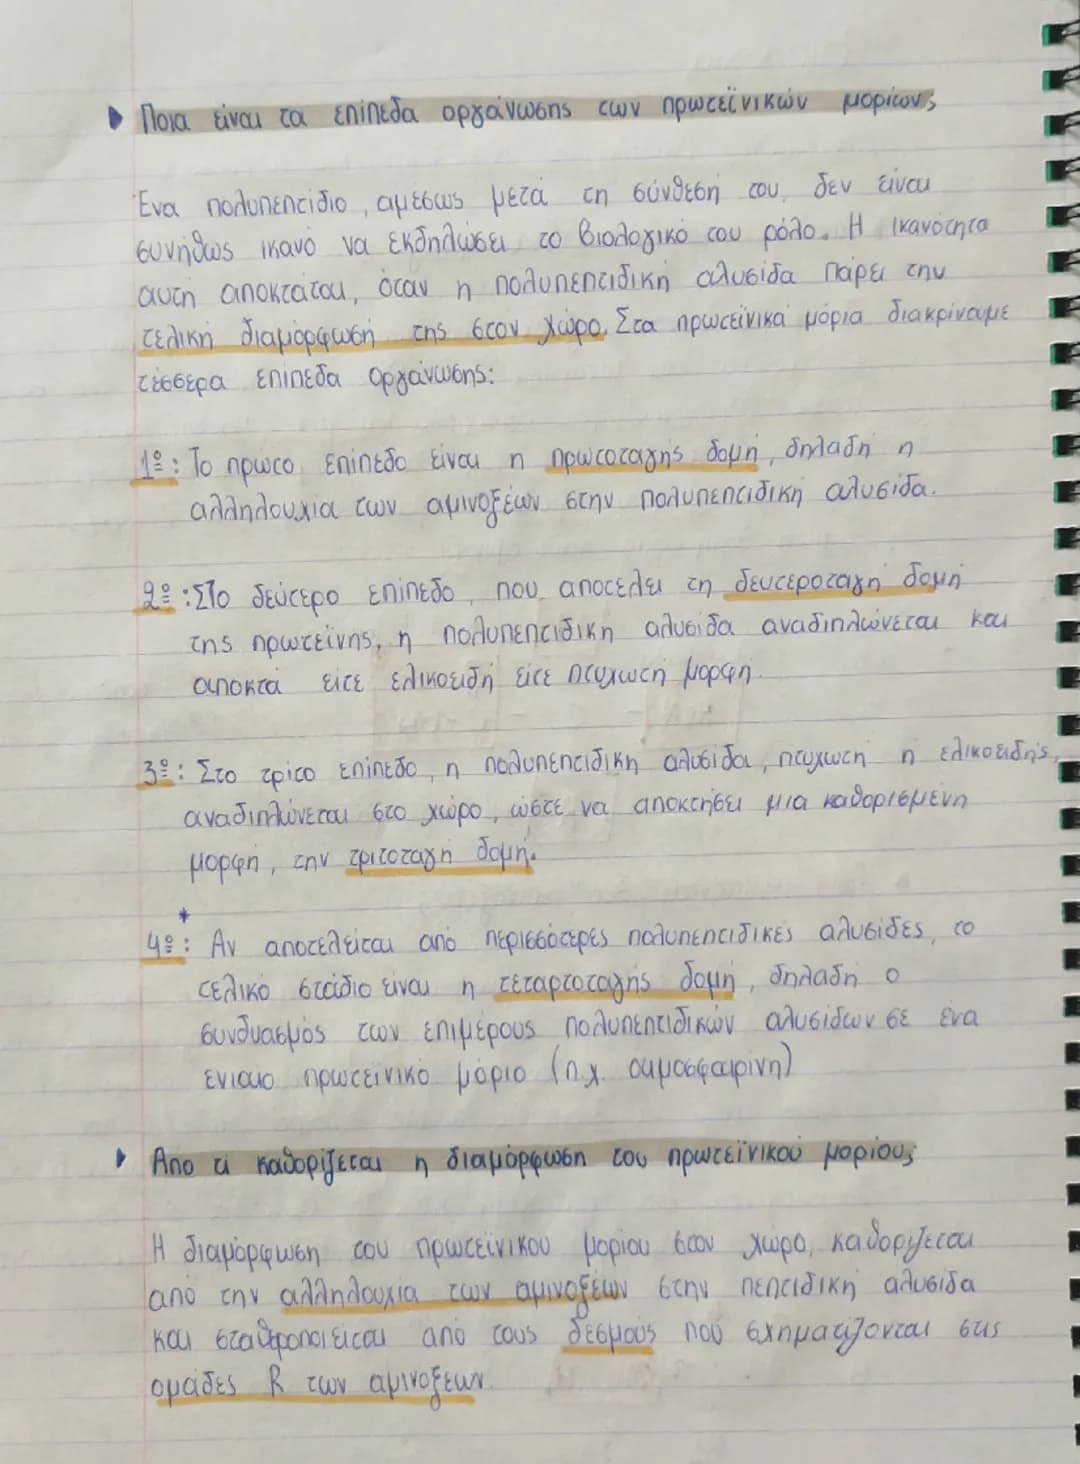 Ποια είναι τα επίπεδα οργάνωσης των πρωτεϊνικών μορίων;
Ένα πολυπεπτίδιο, αμέσως μετά τη σύνθεσή του, δεν είναι
συνήθως ικανό να εκδηλώσει το βιολογικό του ρόλο. Η ικανότητα
αυτή αποκτάται, όταν η πολυπεπτιδική αλυσίδα πάρει την
τελική διαμόρφωσή της στον χώρο. Στα πρωτεϊνικά μόρια διακρίναμε
τέσσερα επίπεδα οργάνωσης:
1º: Το πρώτο επίπεδο είναι η πρωτοταγής δομή, δηλαδή η
αλληλουχία των αμινοξέων στην πολυπεπτιδική αλυσίδα.
2º: Στο δεύτερο επίπεδο, που αποτελεί τη δευτεροταγή δομή
της πρωτεΐνης, η πολυπεπτιδική αλυσίδα αναδιπλώνεται και
αποκτά είτε ελικοειδή είτε πτυχωτή μορφή.
3º: Στο τρίτο επίπεδο, η πολυπεπτιδική αλυσίδα, πτυχωτή η ελικοειδής,
αναδιπλώνεται στο χώρο, ώστε να αποκτήσει μια καθορισμένη
μορφή, την τριτοταγή δομή.
*
4º: Αν αποτελείται από περισσότερες πολυπεπτιδικές αλυσίδες, το
τελικό στάδιο είναι η τεταρτοταγής δομή, δηλαδή ο
συνδυασμός των επιμέρους πολυπεπτιδικών αλυσίδων σε ένα
ενιαίο πρωτεϊνικό μόριο (π.χ. αιμοσφαιρίνη)
Από τι καθορίζεται η διαμόρφωση του πρωτεϊνικού μορίου;
Η διαμόρφωση του πρωτεϊνικού μορίου στον χώρο, καθορίζεται
από την αλληλουχία των αμινοξέων στην πεπτιδική αλυσίδα
και σταθεροποιείται από τους δεσμούς που σχηματίζονται στις
ομάδες R των αμινοξέων.